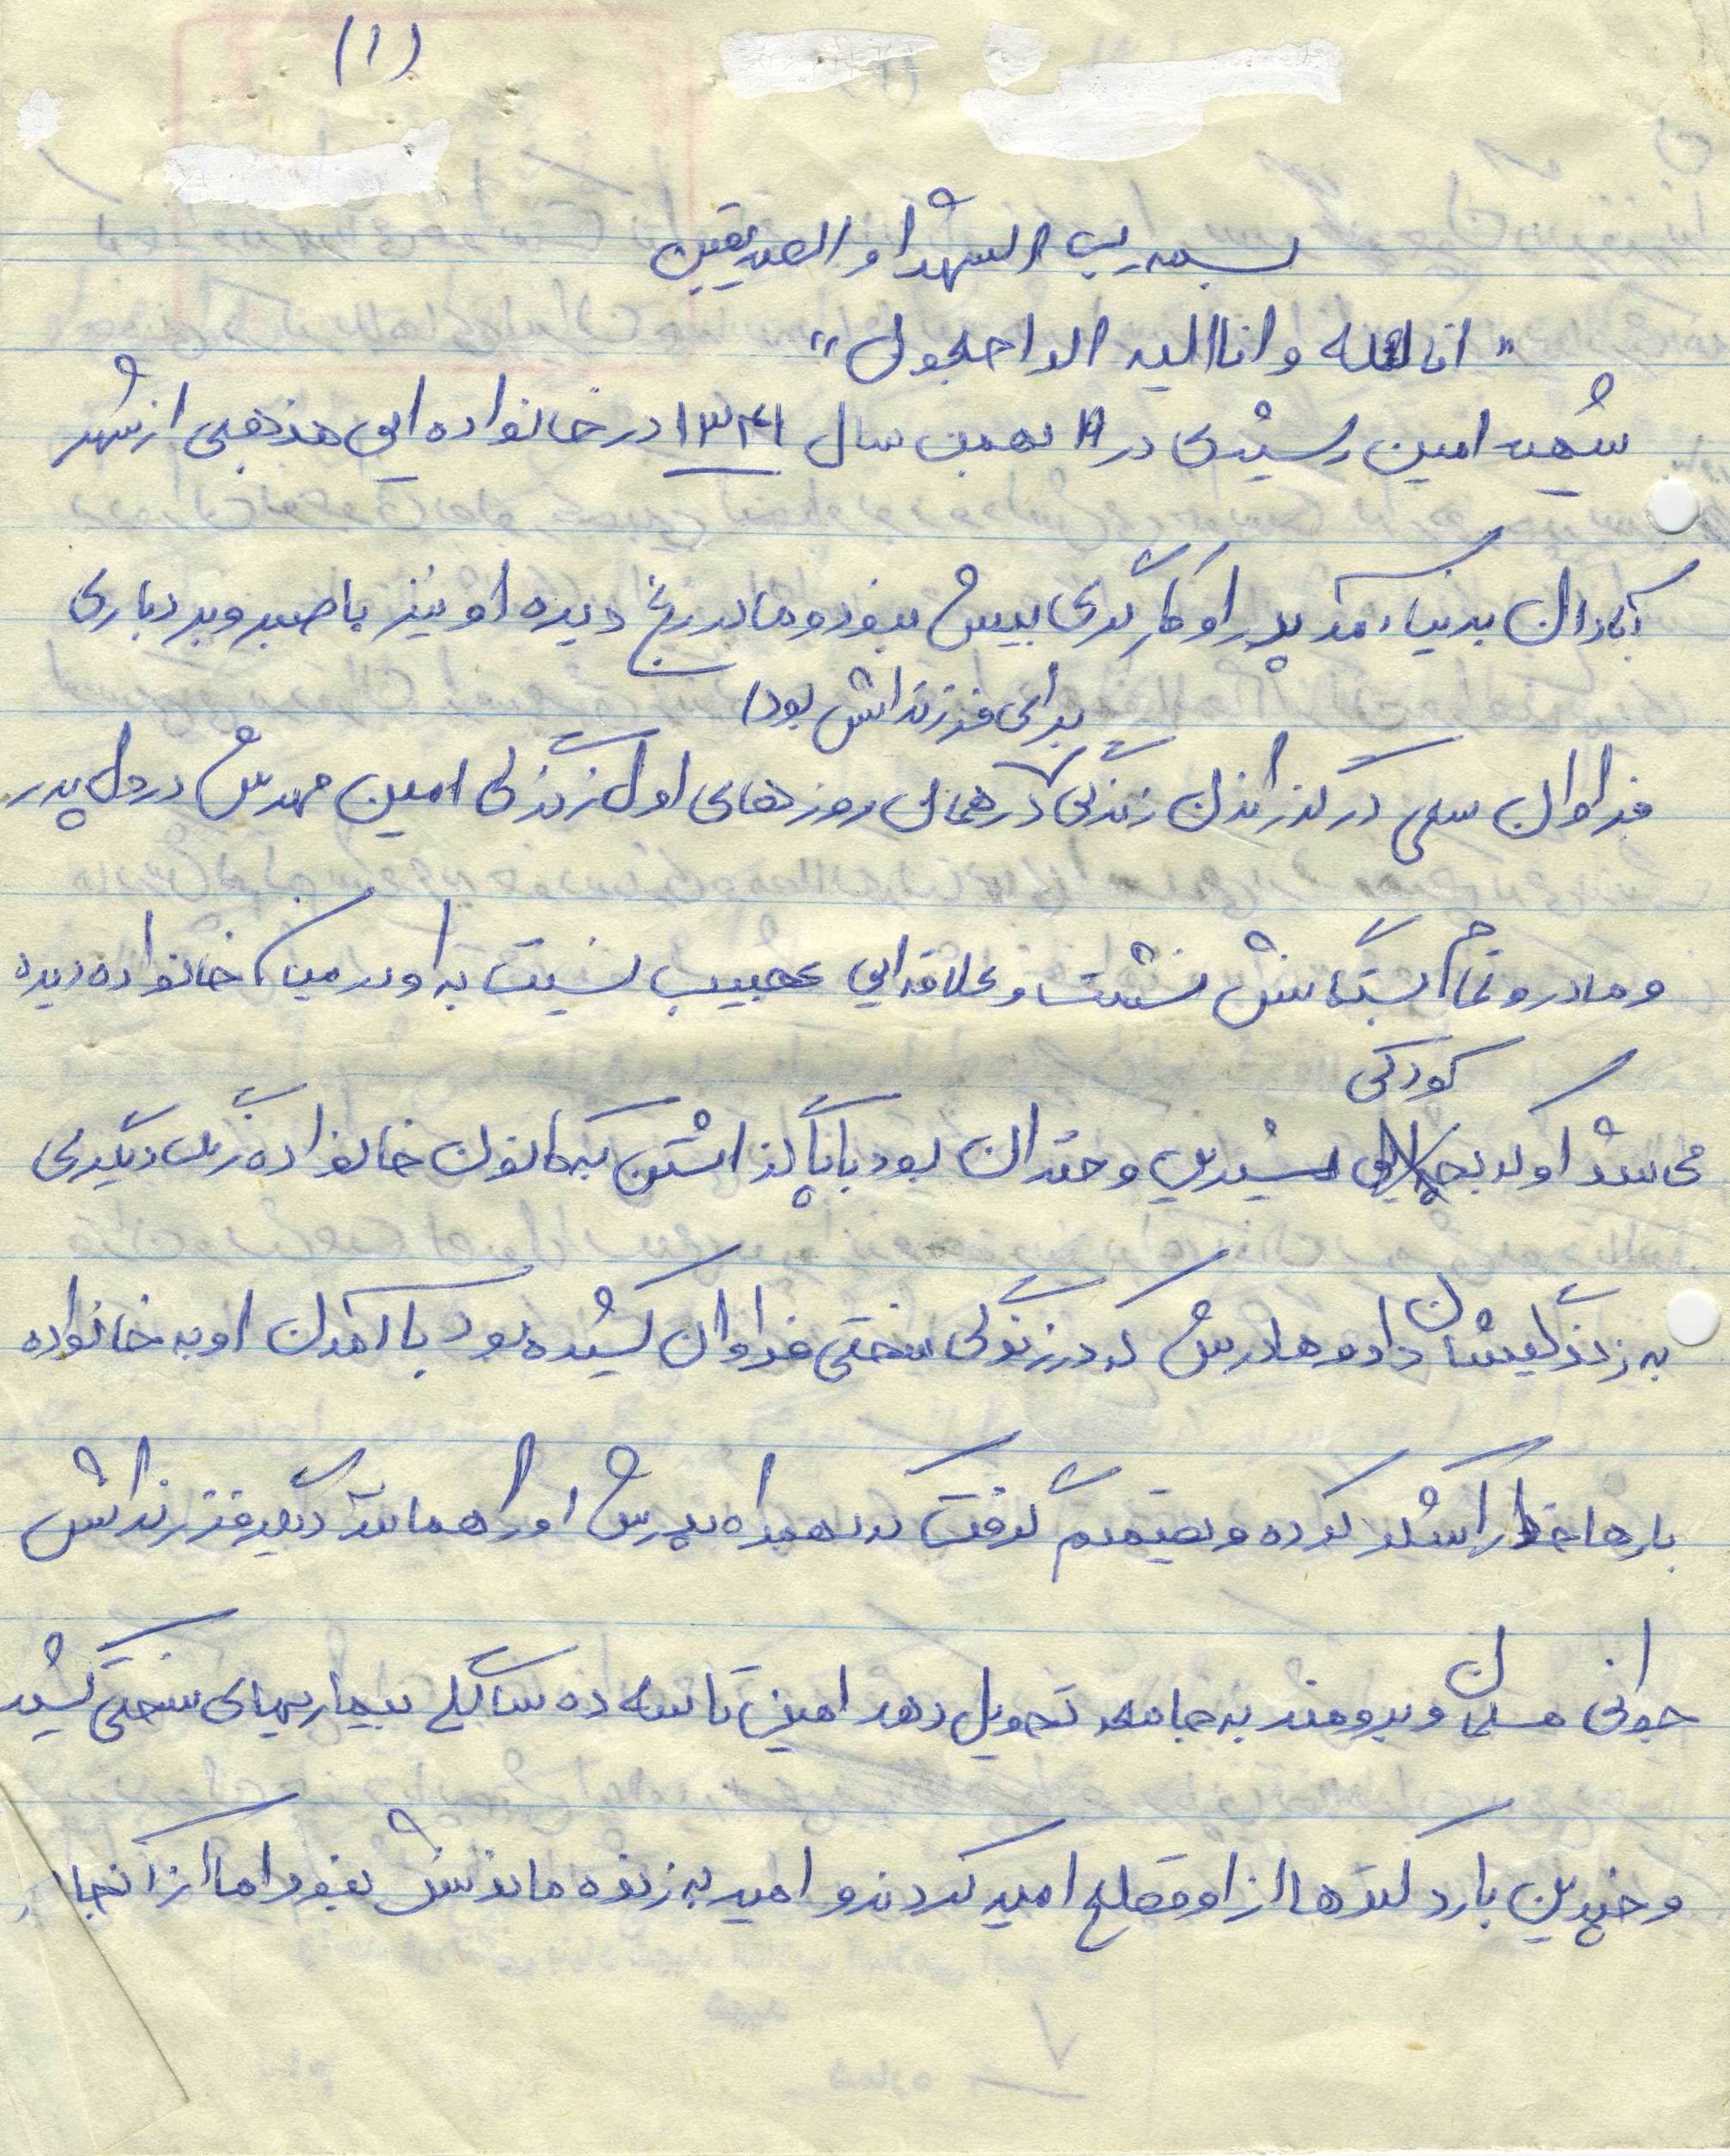 (۱)
بسم رب الشهدا و الصدیقین
"انا لله و انا الیه الراجعون"
شهید امین رشیدی در ۱۸ بهمن سال ۱۳۴۱ در خانواده ایی مذهبی از شهر
آبادان بدنیا آمد پدر او کارگری بیش نبود و مادر رنج دیده او نیز با صبر و بردباری
برای فرزندانش بود)
فراوان سعی در گذراندن زندگی در همان روزهای اول زندگی امین مهرش در دل پدر
و مادر و تمام بستگانش نشست و علاقه ایی عجیب نسبت به او در میان خانواده دیده
کودکی
می شد او که شیرین و خندان بود با پا گذاشتن به کانون خانواده رنگ دیگری
به زندگیشان داد و مادرش که در زندگی سختی فراوان کشیده بود با آمدن او به خانواده
بارها خدا را شکر کرده و تصمیم گرفت که همراه پدرش او را همانند دیگر فرزندانش
جوانی مسلمان و نیرومند به جامعه تحویل دهد امین تا سن ده سالگی بیماریهای سختی کشید
و چندین بار دکترها از او قطع امید کردند و امید به زنده ماندنش نبود اما از آنجا